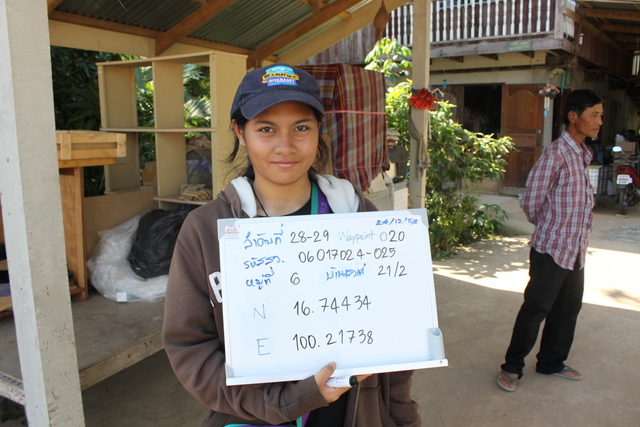 24/12/52
ลำดับที่ 28-29 Waypoint 020
รหัสสว. 06017024-025
หมู่ที่ 6 บ้านเลขที่ 21/2
N 16.74434
E 100.21738